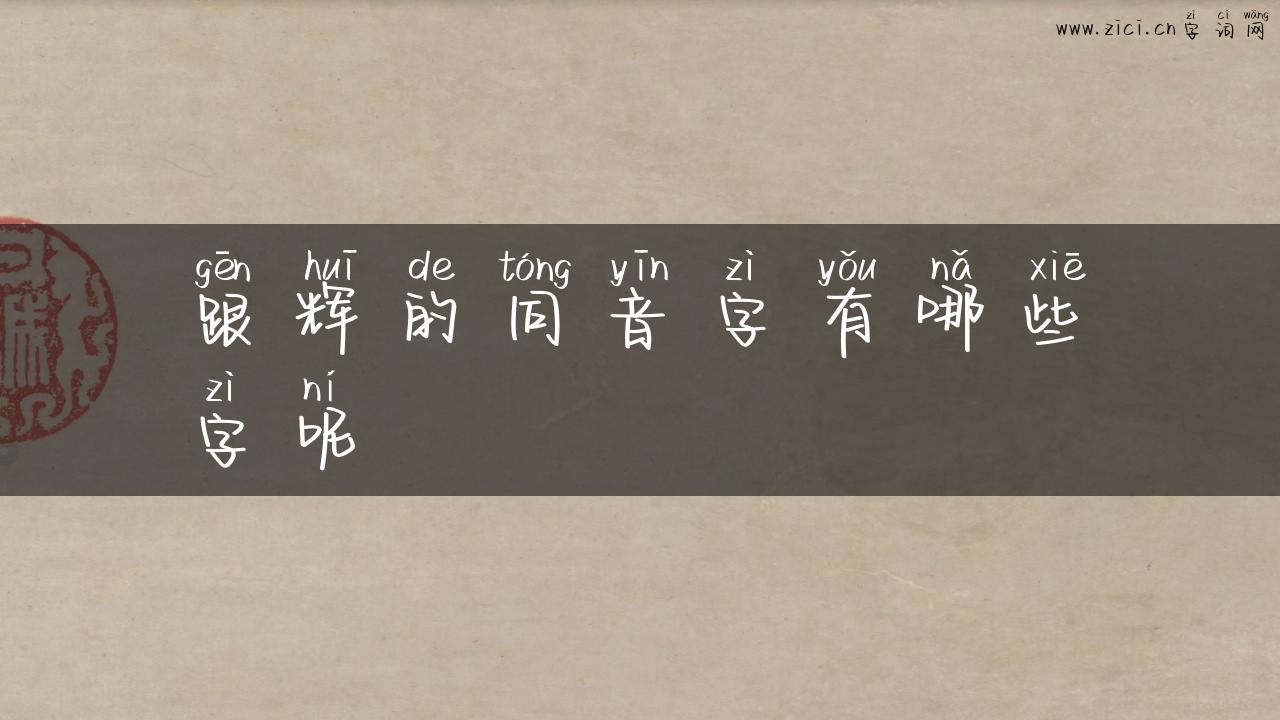 zì cí wǎng
www.zici.cn字词网
gēn huī de tóng yīn zì yǒu nǎ xiē
跟辉的同音字有哪些
zì ní
字呢